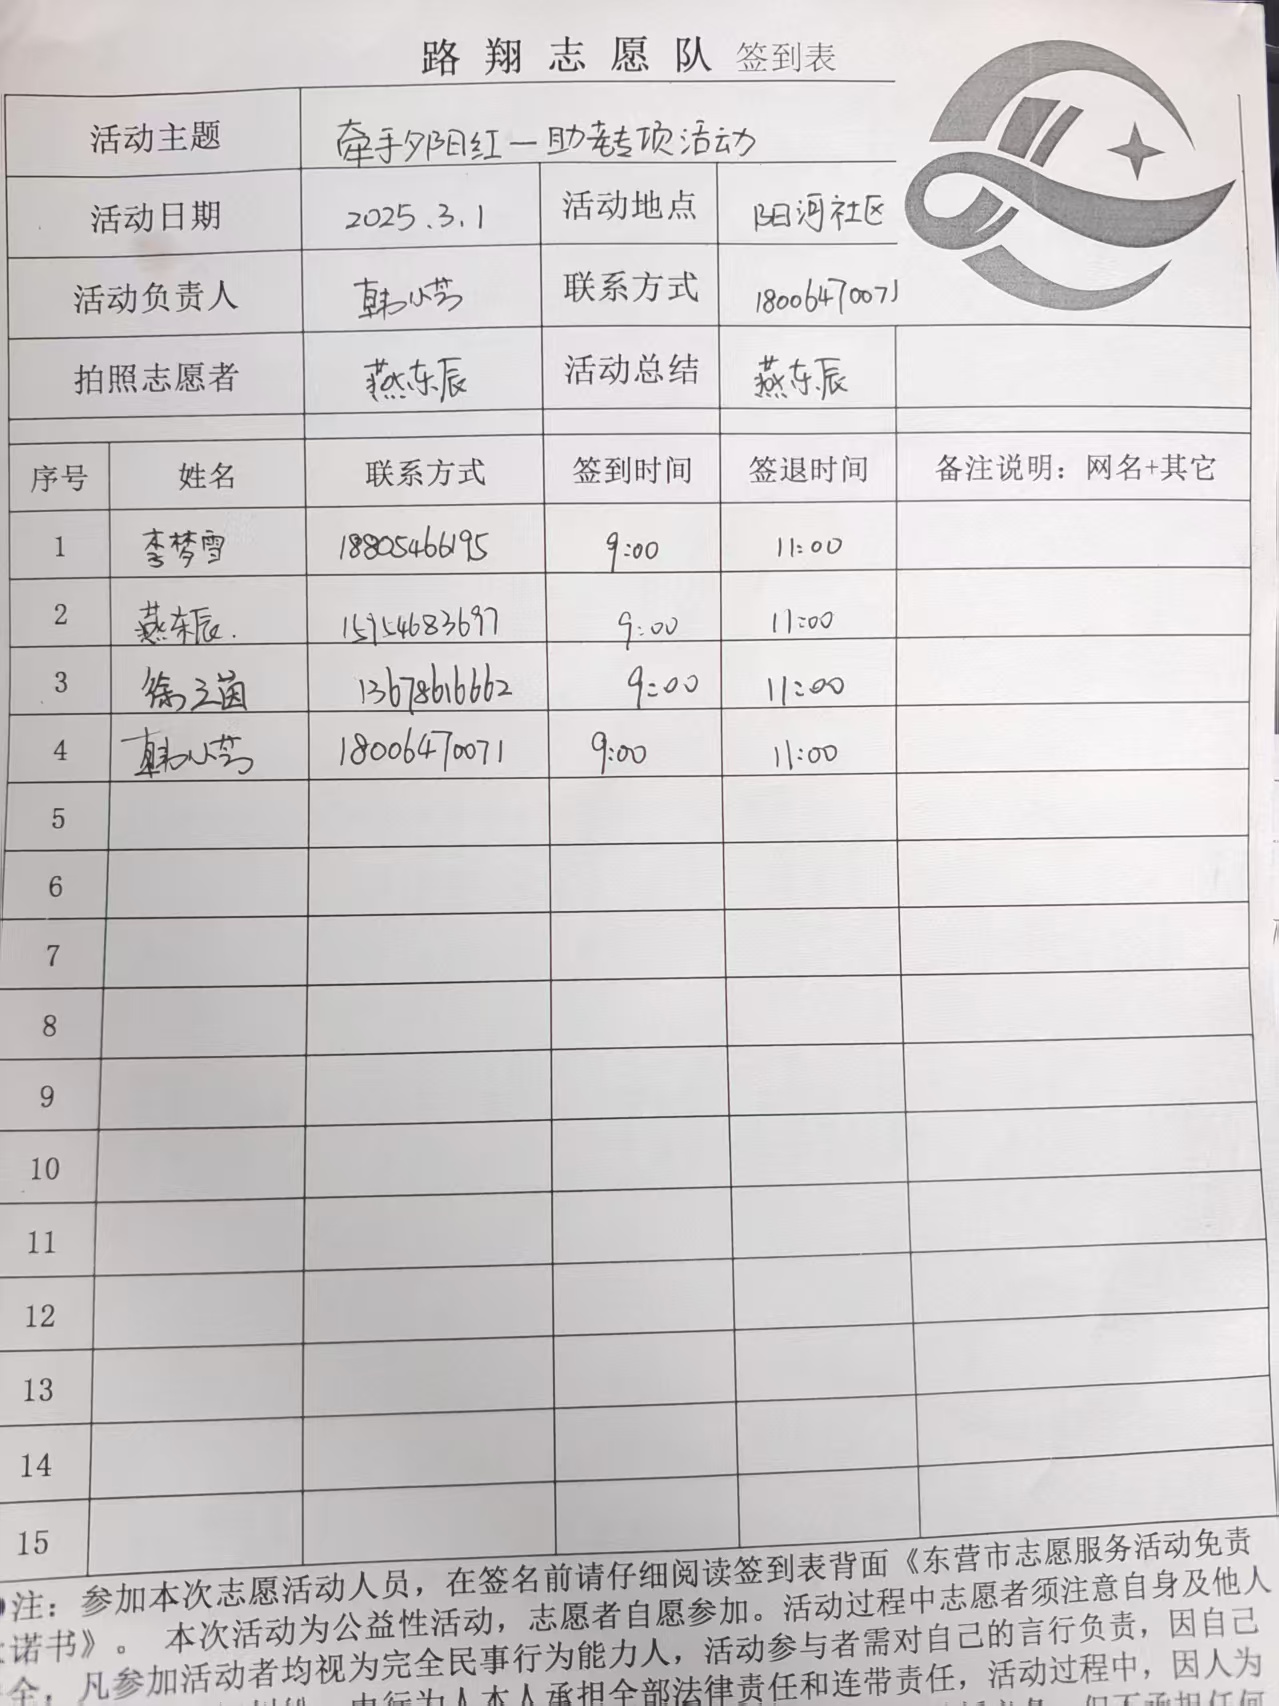 路翔志愿队 签到表
活动主题 牵手夕阳红一助老专项活动
活动日期 2025.3.1 活动地点 阳河社区
活动负责人 韩小芳 联系方式 18006470071
拍照志愿者 燕东辰 活动总结 燕东辰
序号 姓名 联系方式 签到时间 签退时间 备注说明：网名+其它
1 李梦雪 18805466195 9:00 11:00
2 燕东辰. 15954683697 9:00 11:00
3 徐立茵 13678616662 9:00 11:00
4 韩小芳 18006470071 9:00 11:00
5
6
7
8
9
10
11
12
13
14
15
注：参加本次志愿活动人员，在签名前请仔细阅读签到表背面《东营市志愿服务活动免责
诺书》。 本次活动为公益性活动，志愿者自愿参加。活动过程中志愿者须注意自身及他人
全，凡参加活动者均视为完全民事行为能力人，活动参与者需对自己的言行负责，因自己
由行为人本人承担全部法律责任和连带责任，活动过程中，因人为